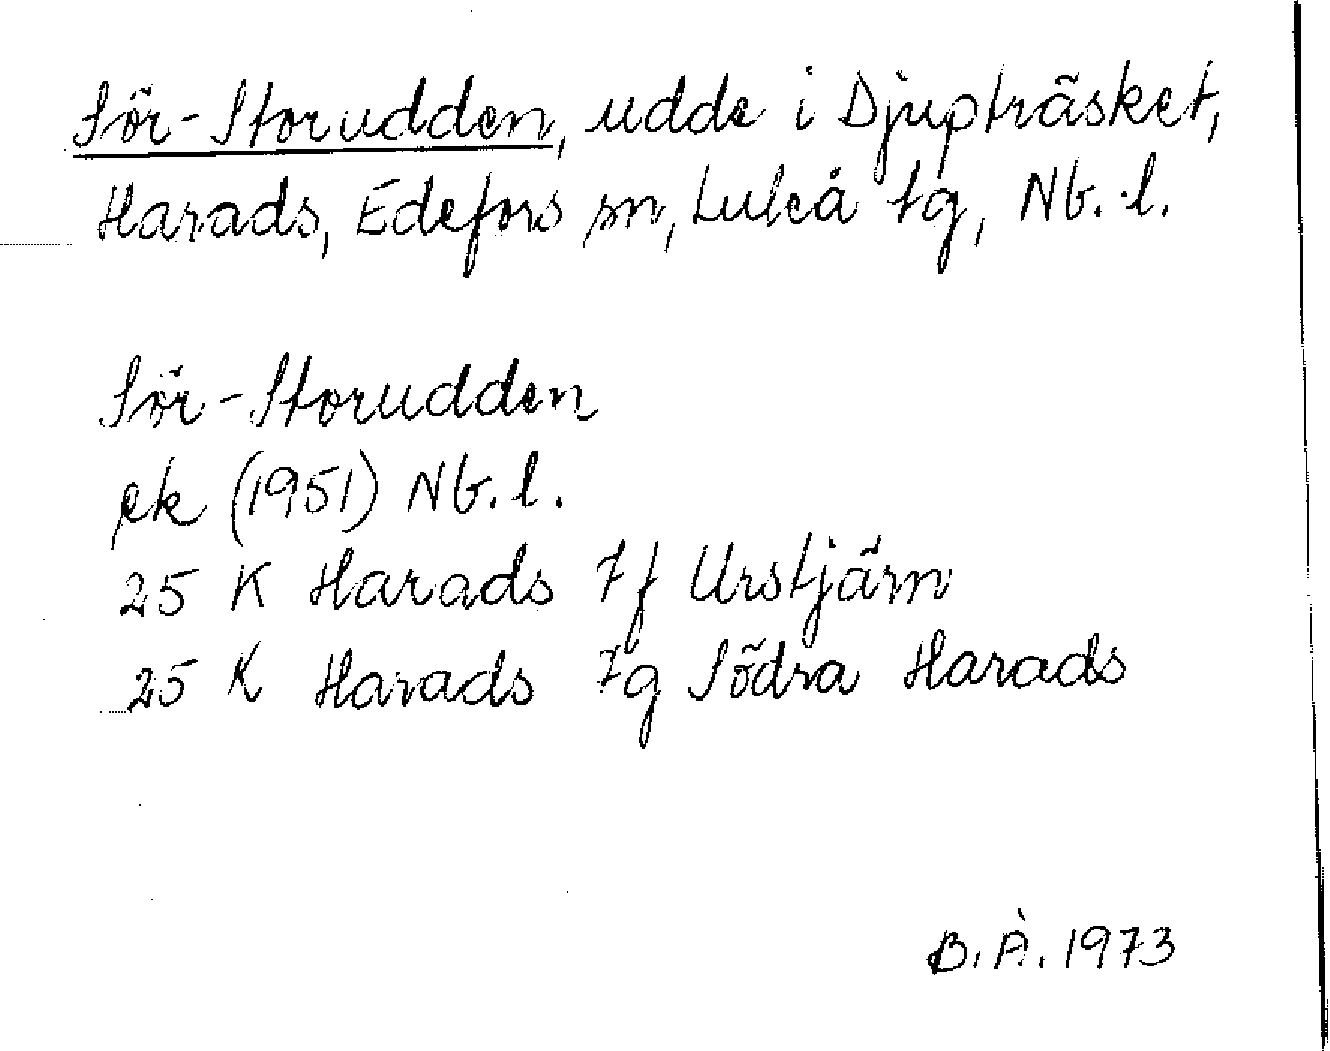 Sör-Storudden, udde i Djupträsket,
Harads, Edefors sn, Luleå tg, Nb. l.
Sör-Storudden
ek (1951) Nb. l.
25 K Harads 7f Urstjärn
25 K Harads 7g Södra Harads
B. Å. 1973